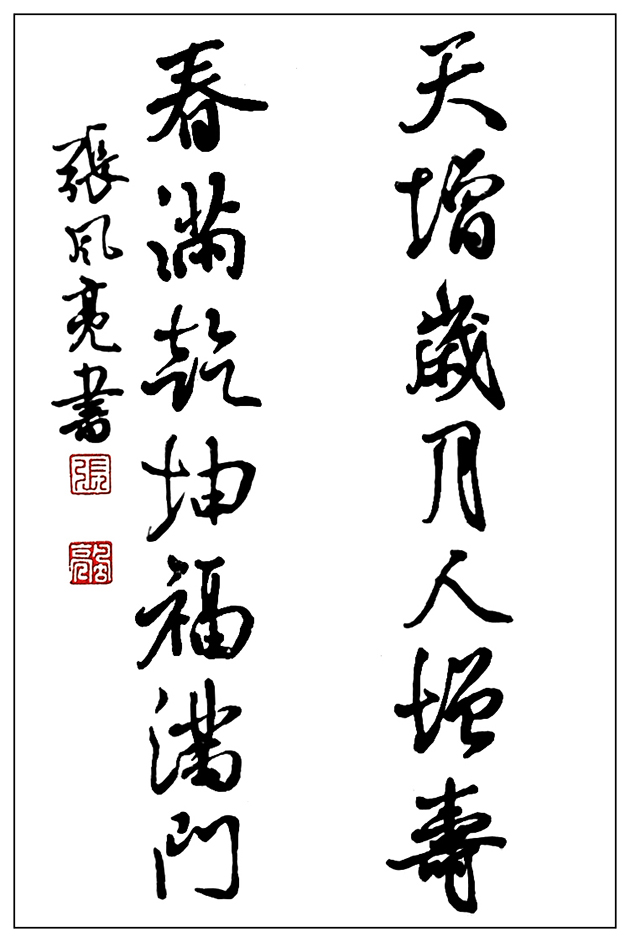 天增歲月人增壽
春滿乾坤福滿門
張风亮書
張